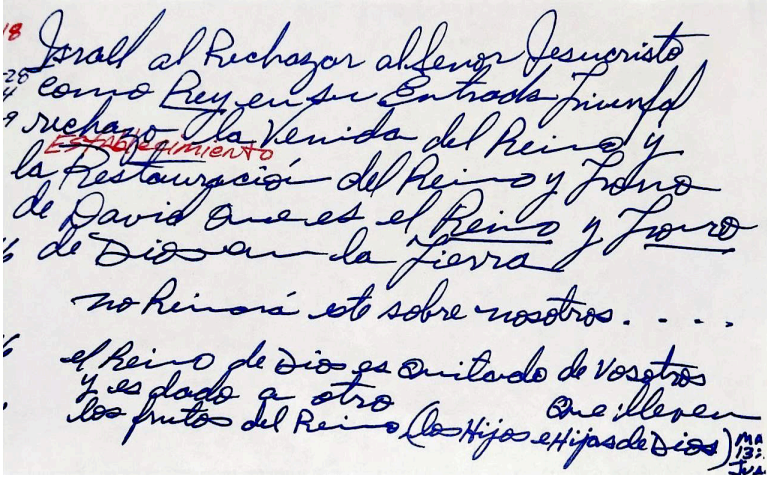 18
Israel al Rechazar al Senor Jesucristo
28 como Rey en su Entrada Triunfal
4
9 rechazo la Venida del Reino y
ESTABLECIMIENTO
la Restauración del Reino y Trono
de David Que es el Reino y Trono
6 de Dios en la Tierra
no Reinará este sobre nosotros. . . .
6 el Reino de Dios es Quitado de Vosotros
y es dado a otro Que lleven
los frutos del Reino (los Hijos e Hijas de Dios) MA
13:
JUA